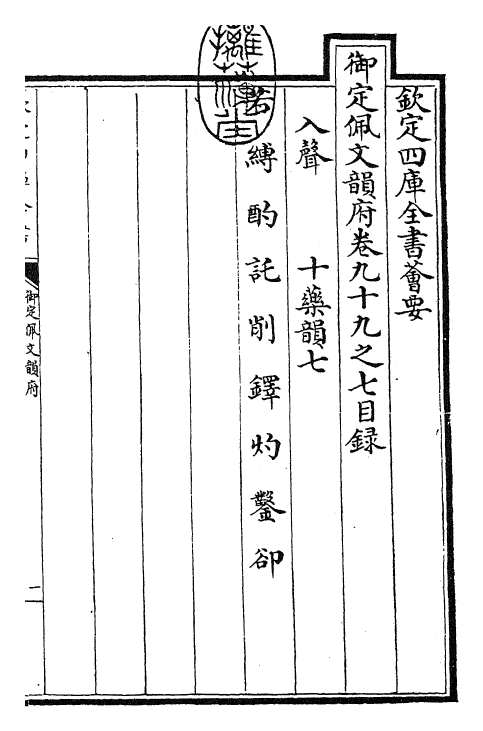 欽定四庫全書薈要
御定佩文韻府卷九十九之七目録
入聲　十藥韻七
若縛酌託削鐸灼鑿卻
御定佩文韻府
一